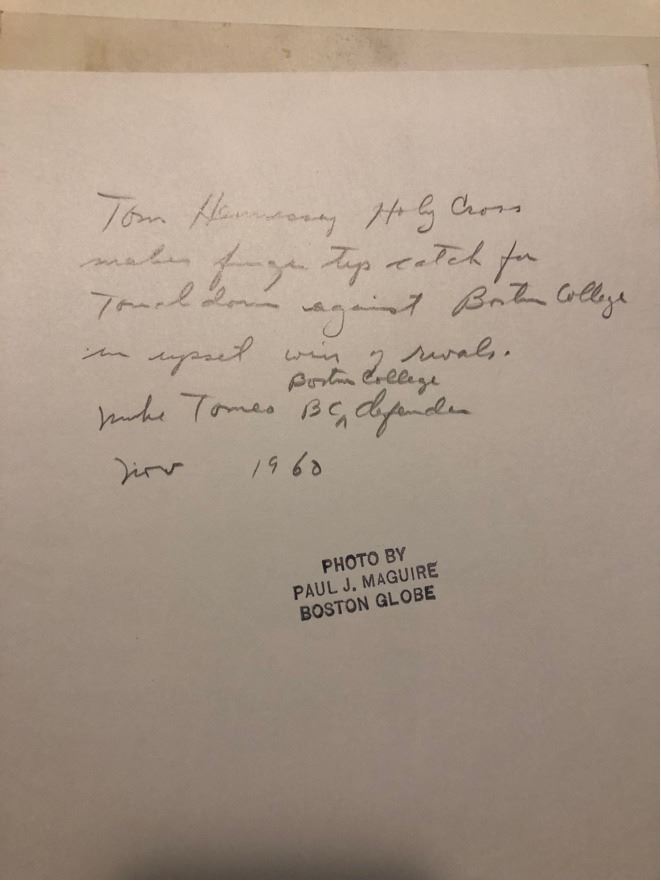 Tom Hennessey Holy Cross
makes finger tip catch for
Touchdown against Boston College
in upset win of rivals.
Boston College
Mike Tomeo BC ^ defender
Nov 1960
PHOTO BY
PAUL J. MAGUIRE
BOSTON GLOBE